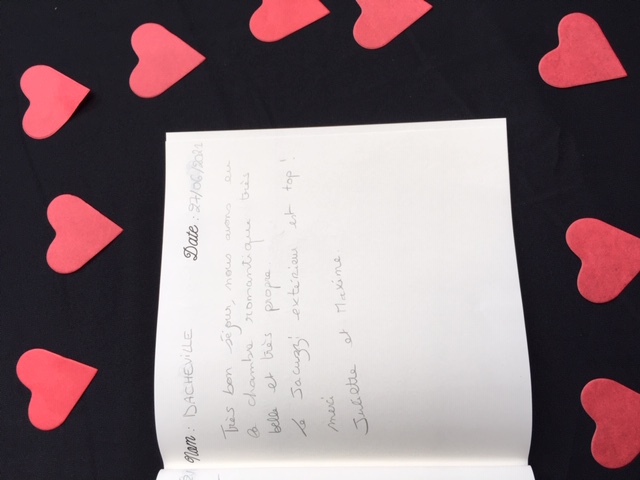 Nom : DACHEVILLE Date : 27/06/2021
Très bon séjour, nous avons eu
la chambre romantique très
belle et très propre.
Le Jacuzzi extérieur est top !
merci
Juliette et Maxime.